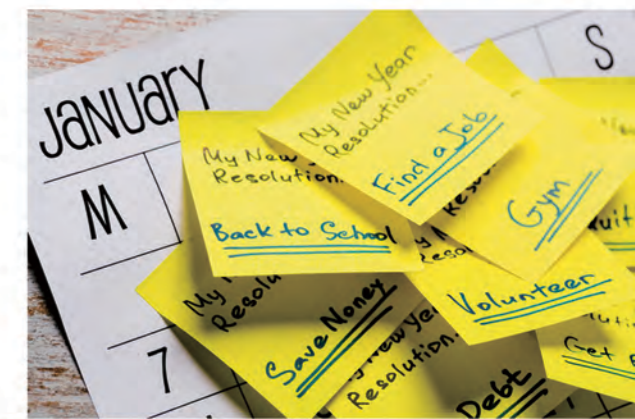 January
S
M
7
My New Year
Resolution...
Find a Job
My New
Resolution.
Back to School
Gym
Volunteer
My
Resolu
Save Noney
New Year
Resolution..
Debt
Get